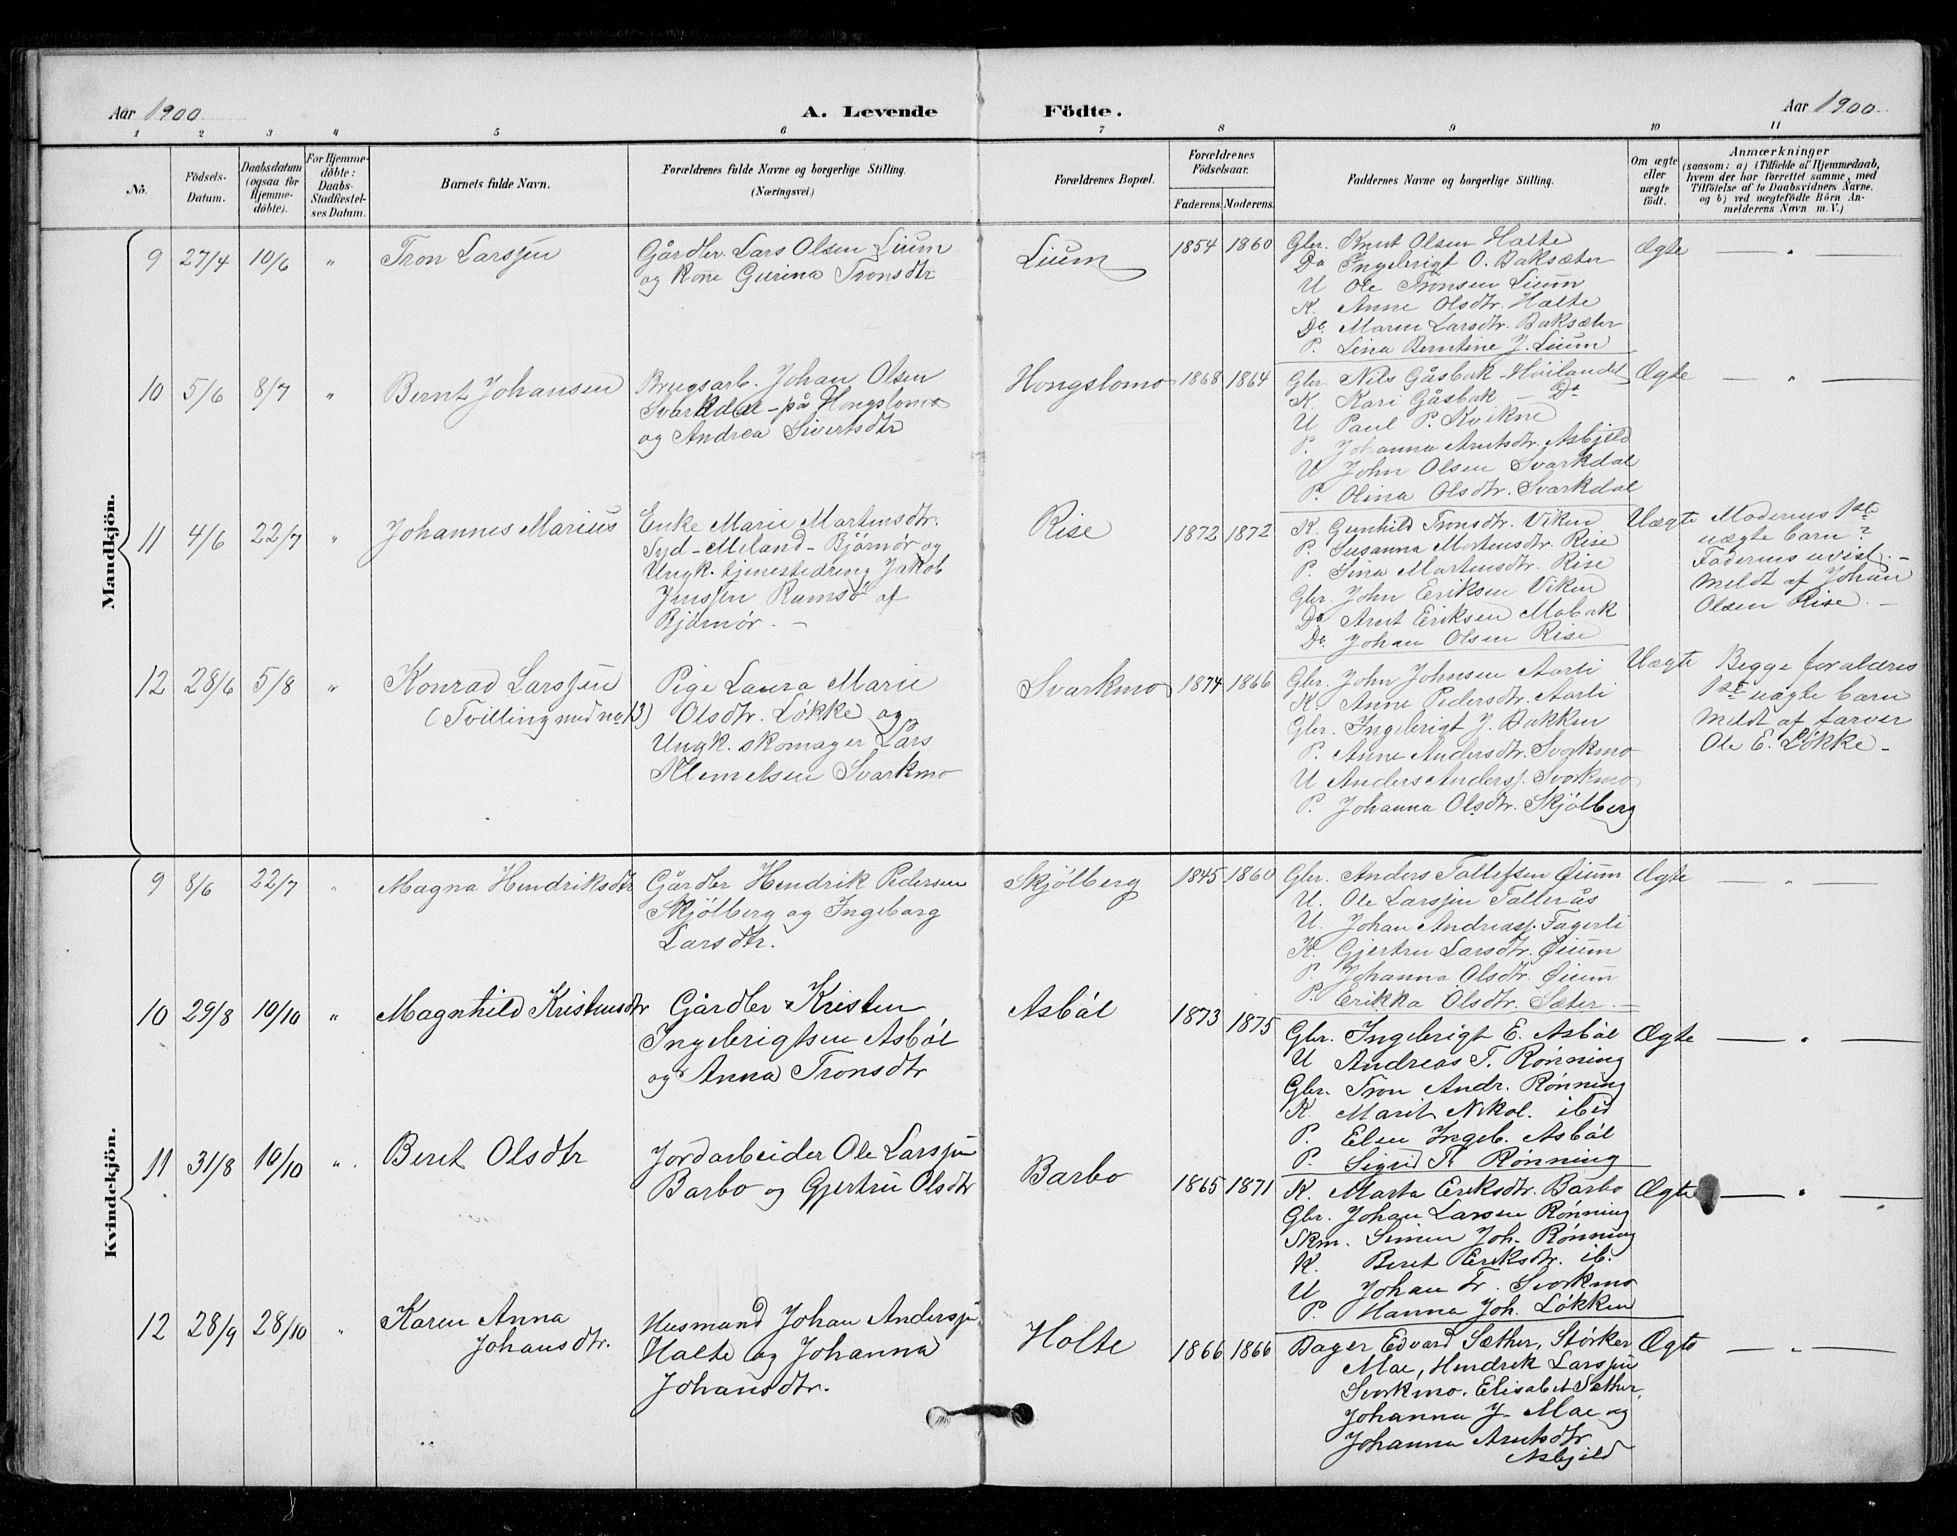 Aar 1900
A. Levende
Födte.
Aar 1900
1 2 3 4 5 6 7 8 9 10 11
No.
Födsels-Datum.
Daabsdatum (ogsaa for Hjemme-döbte).
For Hjemme-döbte: Daabs-Stadfæstel-ses Datum.
Barnets fulde Navn.
Forældrenes fulde Navne og borgerlige Stilling.
(Næringsvei.)
Forældrenes Bopæl.
Forældrenes Födselsaar.
Faderens. Moderens.
Faddernes Navne og borgerlige Stilling.
Om ægte eller uægte födt.
Anmærkninger
(saasom: a) i Tilfælde af Hjemmedaab,
hvem der har forrettet samme, med
Tilföielse af to Daabsvidners Navne,
og b) ved uægtefödte Börn An-
melderens Navn m. V.)
Mandkjön.
9 27/4 10/6 " Tron Larssen
Gårdbr. Lars Olsen Lium
og Kone Gurina Tronsdtr
Lium
1854 1860
Gbr. Knut Olsen Holte
Do Ingebrigt O. Baksæter
U Ole Tronsen Lium
K. Anne Olsdtr. Holte
Do Maren Larsdtr. Baksæter
P. Lina Berntine J. Lium
Ægte — " —
10 5/6 8/7 " Bernt Johansen
Brugsarb. Johan Olsen
Svarkdal - på Hongslomo
og Andrea Sivertsdtr
Hongslomo
1868 1864
Gbr. Nils Gåsbak - Höilandet
K. Kari Gåsbak - Do
U Paul P. Kvikne
P. Johanna Arntsdtr. Asbjeld
U John Olsen Svarkdal
P. Olina Olsdtr. Svarkdal
Ægte — " —
11 4/6 22/7 " Johannes Marius
Enke Marie Martinsdtr.
Syd-Meland - Bjørnør og
Ungk. tjenestedreng Jakob
Jenssen Ramsø af
Bjørnør. —
Rise
1872 1872
K. Gunhild Tronsdtr. Viken
P. Susanna Mortensdtr. Rise
P. Sina Martinsdtr. Rise
Gbr. John Eriksen Viken
Do Arnt Eriksen Mobak
Do Johan Olsen Rise
Uægte
Moderens 1ste
uægte barn?
Faderens uvist. —
Meldt af Johan
Olsen Rise. —
12 28/6 5/8 " Konrad Larssen
(Tvilling med no 13)
Pige Laura Marie
Olsdtr. Løkke og
Ungk. skomager Lars
Klemetsen Svarkmo
Svarkmo
1874 1866
Gbr. John Johnsen Aarli
K. Anne Pedersdtr. Aarli
Gbr. Ingebrigt J. Bakken
P. Anne Andersdtr. Svorkmo
U Anders Anderss. Svorkmo
P. Johanna Olsdtr. Skjølberg
Uægte
Begge forældres
1ste uægte barn
Meldt af farver
Ole E. Løkke —
Kvindekjön.
9 8/6 22/7 " Magna Hendriksdtr
Gårdbr Hendrik Pedersen
Skjølberg og Ingeborg
Larsdtr.
Skjølberg
1845 1860
Gbr. Anders Tollefsen Øium
U. Ole Larssen Tallerås
U. Johan Andreass. Fagerli
K. Gjertru Larsdtr. Øium
P. Johanna Olsdtr. Øium
P. Erikka Olsdtr. Sæter. —
Ægte — " —
10 29/8 10/10 " Magnhild Kristensdtr
Gårdbr Kristen
Ingebrigtsen Asbøl
og Anna Tronsdtr
Asbøl
1873 1875
Gbr. Ingebrigt E. Asbøl
U Andreas T. Rønning
Gbr. Tron Andr. Rønning
K. Marit Nikol. ibid
P. Elen Ingeb. Asbøl
P. Sigrid T. Rønning
Ægte — " —
11 31/8 10/10 " Beret Olsdtr
Jordarbeider Ole Larssen
Barbo og Gjertru Olsdtr
Barbo
1865 1871
K. Marta Eriksdtr. Barbo
Gbr. Johan Larsen Rønning
Skm. Simen Joh. Rønning
K. Beret Eriksdtr. ib.
U Johan Tr. Svorkmo
P. Hanna Joh. Løkken
Ægte — " —
12 28/9 28/10 " Karen Anna
Johansdtr.
Husmand Johan Anderssen
Holte og Johanna
Johansdtr.
Holte
1866 1866
Bager Edvard Sæther, Størker
Moe, Hendrik Larssen
Svorkmo. Elisabet Sæther,
Johanna J. Moe og
Johanna Arntsdtr
Asbjeld
Ægte — " —